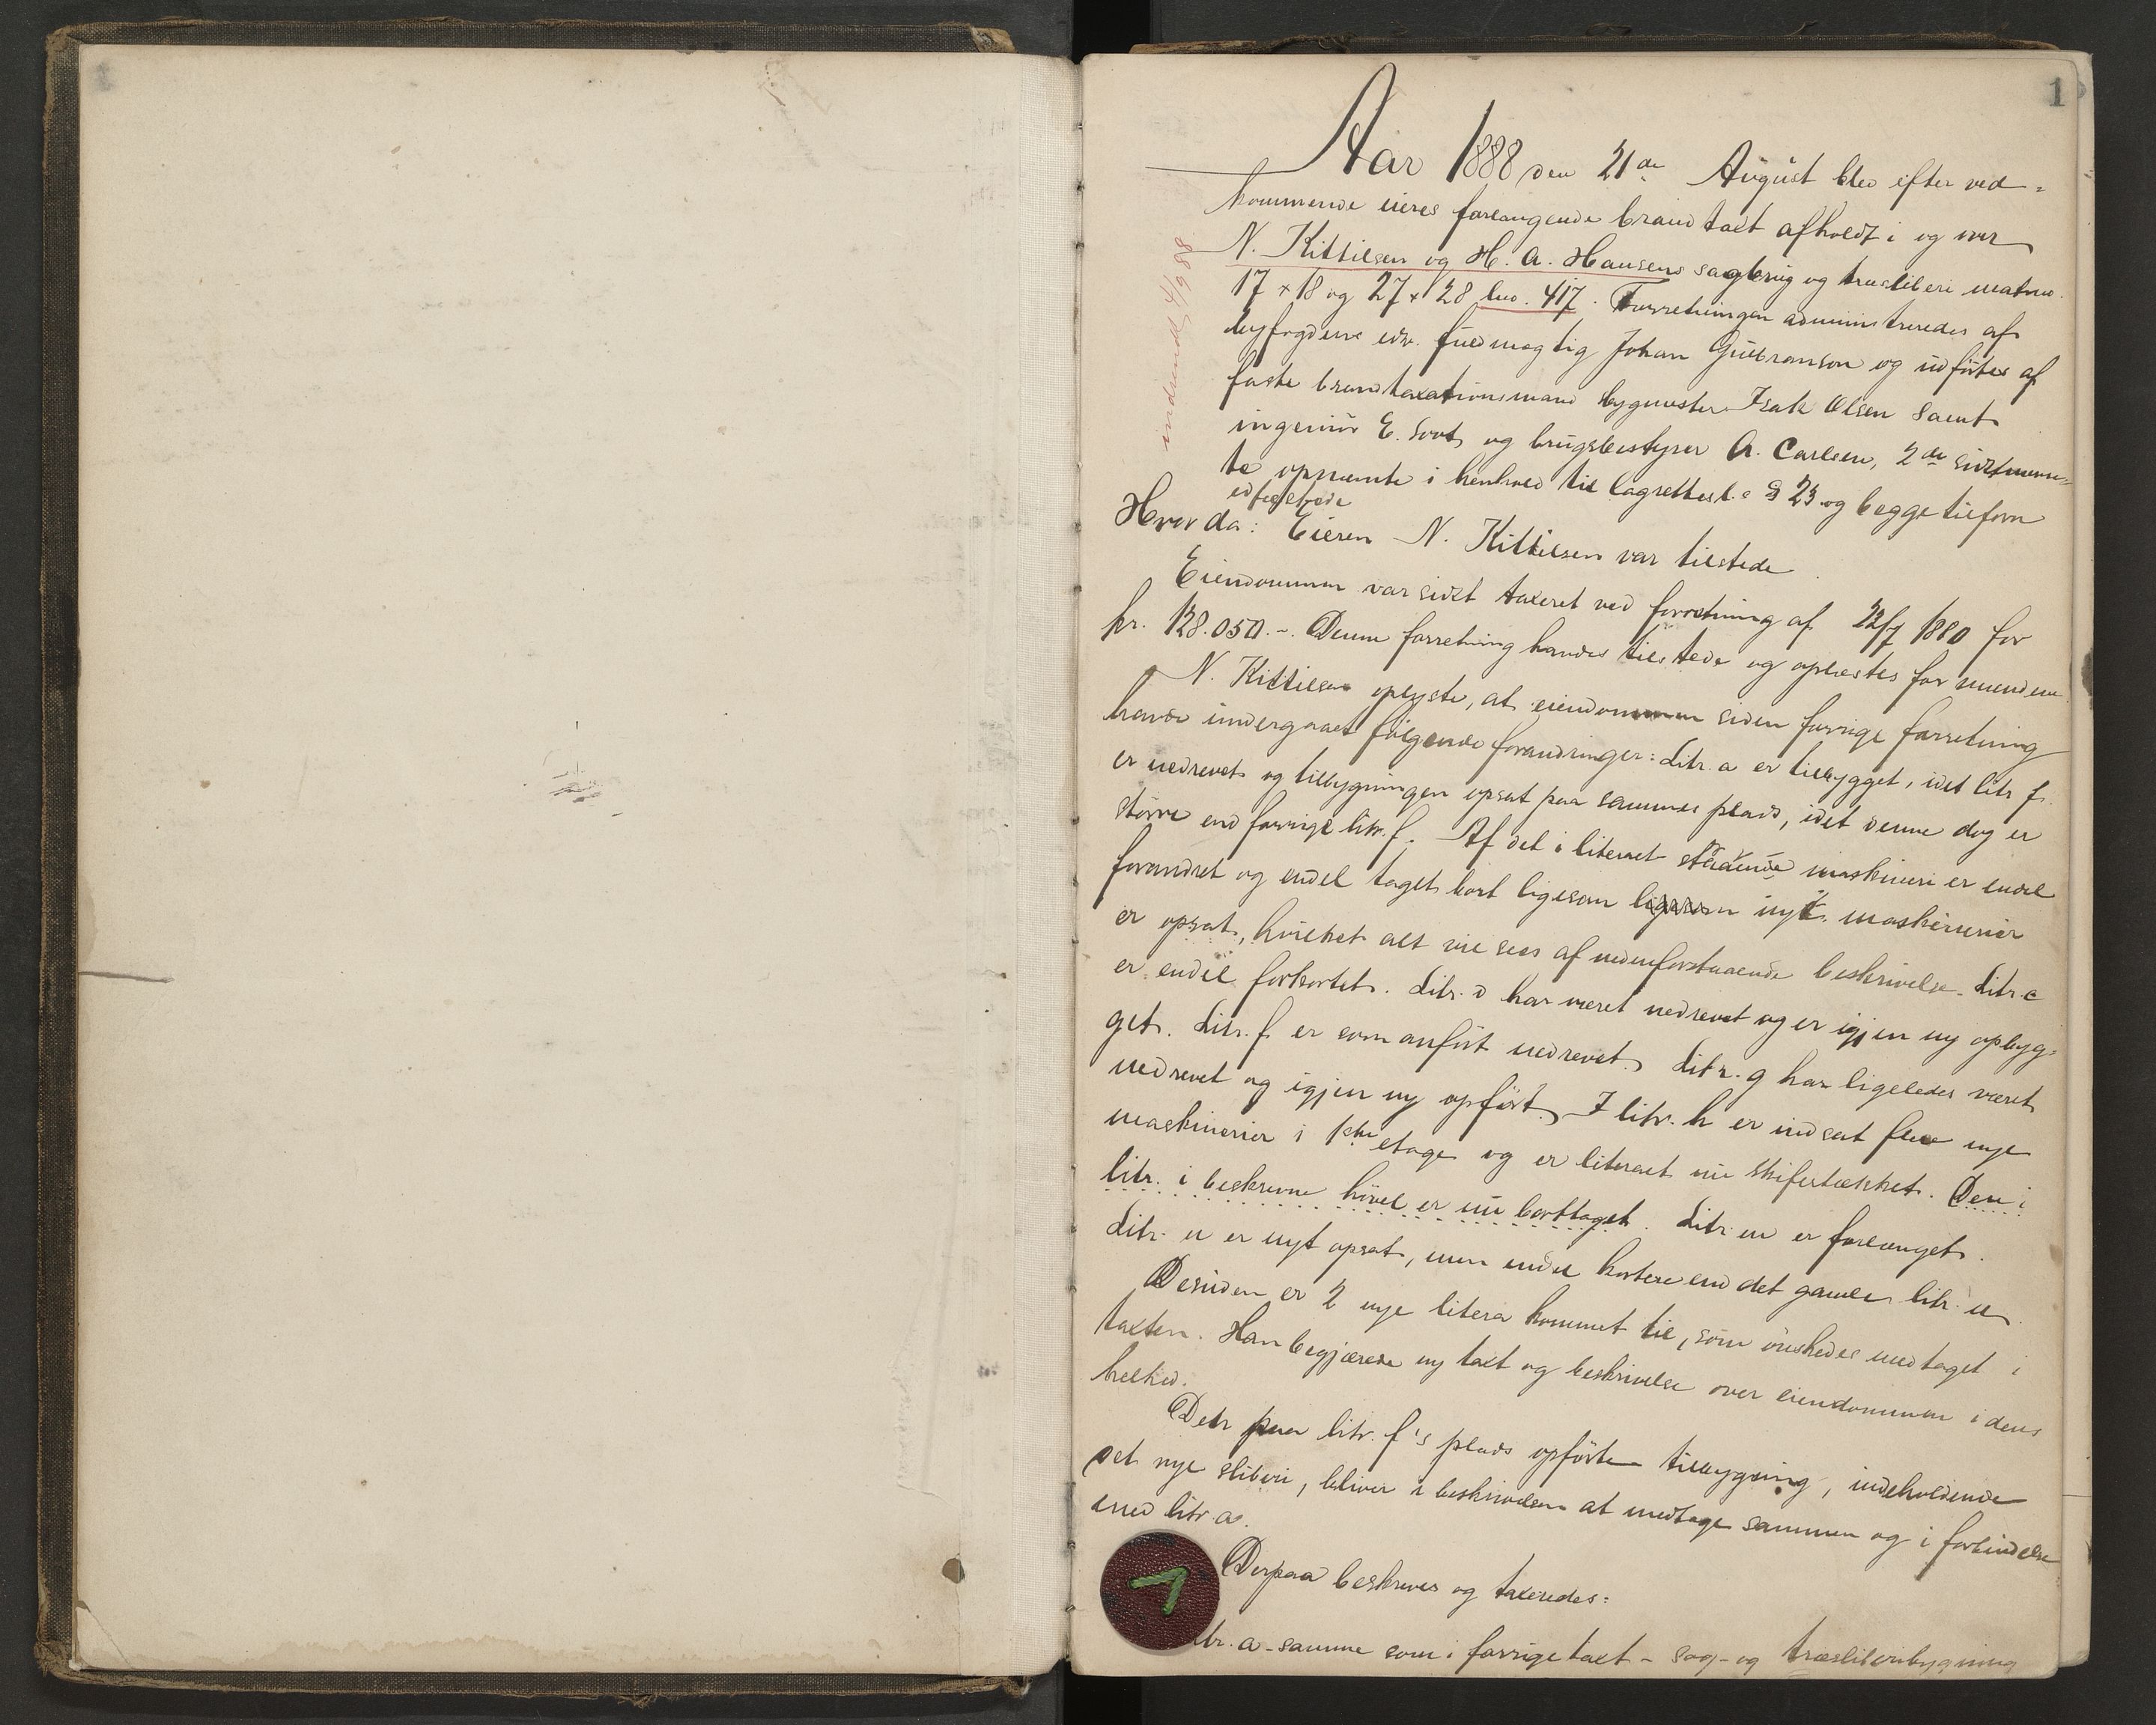 1
Aar 1888 den 21de August blev efter ved-
kommende eieres forlangende brandtaxt afholdt i og over
N. Kittilsen og H. A. Hansens sagbrug og træsliberi matrno.
17 + 18 og 27 + 28 bno. 417. Forretningen administreredes af
byfogdens edsv. fuldmægtig Johan Gulbranson og udförtes af
faste brandtaxationsmand bygmester Isak Olsen samt
ingeniör E. Soot og brugsbestyrer A. Carlsen, 2de sidstnævn-
te opnævnte i henhold til lagretteslovs § 23 og begge tilforn
edfæstede
Hvorda: Eieren N. Kittilsen var tilstede.
Eiendommen var sidst taxeret ved forretning af 22/7 1880 for
kr. 128.050.-. Denne forretning havdes tilstede og oplæstes for mændene.
N. Kittilsen oplyste, at eiendommen siden forrige forretning
havde undergaaet fölgende forandringer: Litr. a er tilbygget, idet litr f.
er nedrevet og tilbygningen opsat paa sammes plads, idet denne dog er
större end forrige litr. f. Af det i literaet staaende maskineri er endel
forandret og endel taget bort ligesom nyt maskineri
er opsat, hvilket alt vil sees af nedenforstaaende beskrivelse. Litr. c
er endel forkortet. Litr. d har været nedrevet og er igjen ny opbyg-
get. Litr. f er som anfört nedrevet. Litr. g har ligeledes været
nedrevet og igjen ny opfört. I litr. h er indsat flere nye
maskinerier i 1ste etage og er literaet nu skifertækket. Den i
litr. i beskrevne hövel er nu borttaget. Litr. m er forlænget.
Litr. n er nyt opsat, men endel kortere end det gamle litr. n.
Desuden er 2 nye litera kommet til, som önskedes medtaget i
taxten. Han begjærede ny taxt og beskrivelse over eiendommen i dens
helhed.
Den paa litr. f's plads opförte tilbygning, indeholdende
det nye sliberi, bliver i beskrivelsen at medtage sammen og i forbindelse
med litr. a.
Derpaa beskreves og taxeredes:
Litr. a - samme som i forrige taxt - sag- og træsliberibygning
indsendt 4/9 88